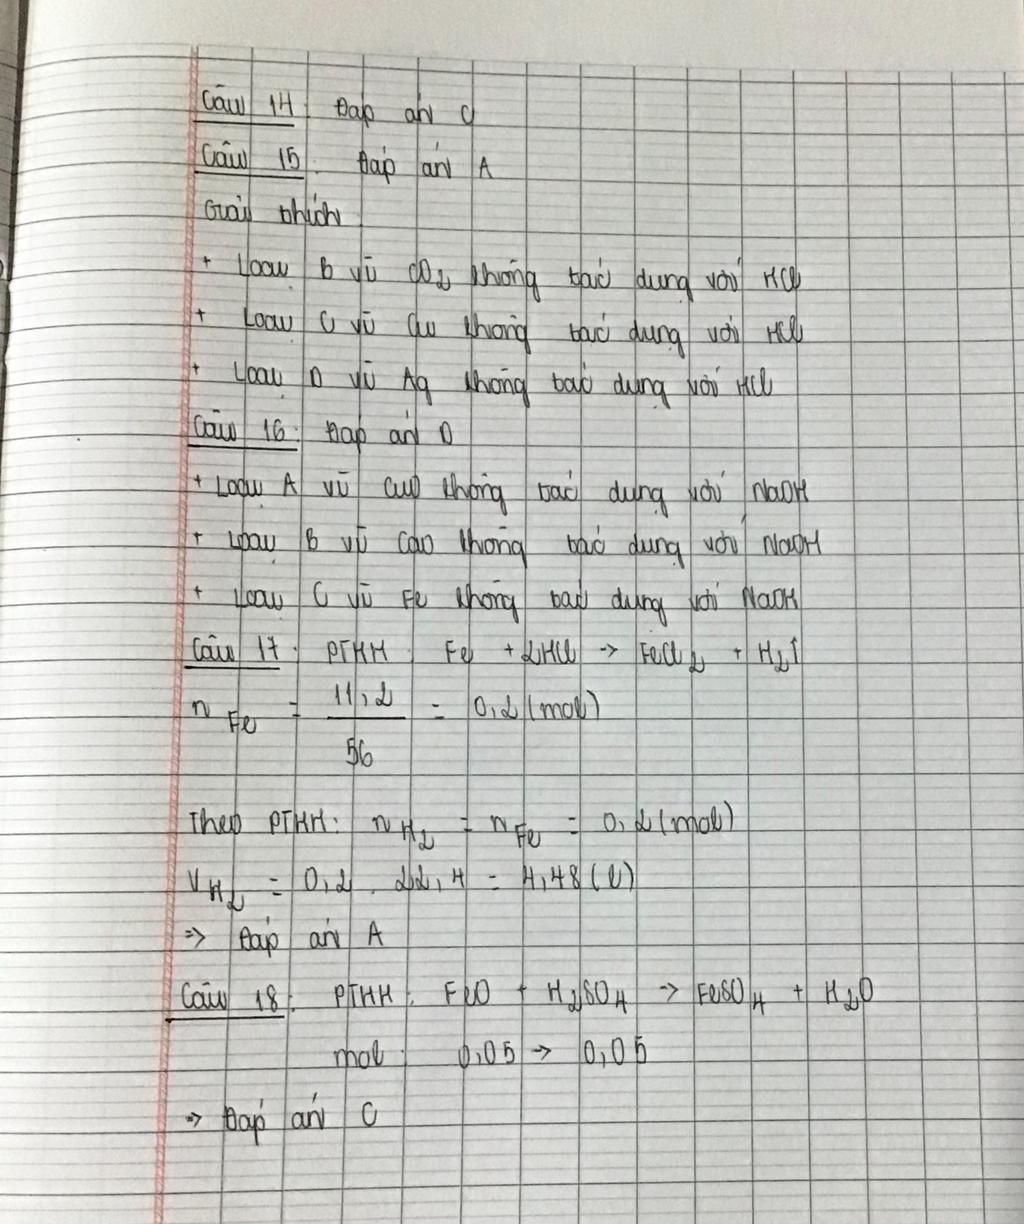 Câu 14: Đáp án C
Câu 15: Đáp án A
Giải thích
+ Loại B vì CO2 không tác dụng với HCl
+ Loại C vì Cu không tác dụng với HCl
+ Loại D vì Ag không tác dụng với HCl
Câu 16: Đáp án D
+ Loại A vì CuO không tác dụng với NaOH
+ Loại B vì CaO không tác dụng với NaOH
+ Loại C vì Fe không tác dụng với NaOH
Câu 17: PTHH: Fe + 2HCl -> FeCl2 + H2↑
nFe = 11,2/56 = 0,2 (mol)
Theo PTHH: nH2 = nFe = 0,2 (mol)
VH2 = 0,2 . 22,4 = 4,48 (l)
=> Đáp án A
Câu 18: PTHH: FeO + H2SO4 -> FeSO4 + H2O
mol: 0,05 -> 0,05
=> Đáp án C